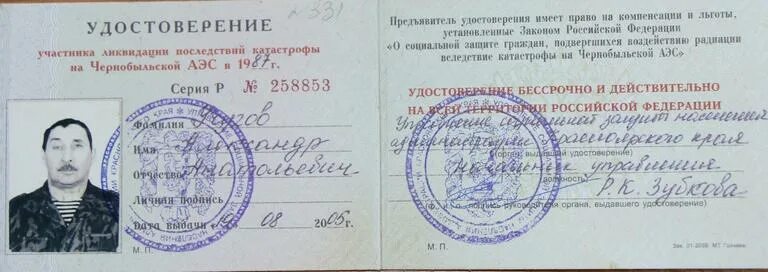 331
УДОСТОВЕРЕНИЕ
участника ликвидации последствий катастрофы
на Чернобыльской АЭС в 1987 г.
Серия Р № 258853
Фамилия
Имя Александр
Отчество Анатольевич
Личная подпись
Дата выдачи 08 2005 г.
М. П.
Предъявитель удостоверения имеет право на компенсации и льготы,
установленные Законом Российской Федерации
«О социальной защите граждан, подвергшихся воздействию радиации
вследствие катастрофы на Чернобыльской АЭС»
УДОСТОВЕРЕНИЕ БЕССРОЧНО И ДЕЙСТВИТЕЛЬНО
НА ВСЕЙ ТЕРРИТОРИИ РОССИЙСКОЙ ФЕДЕРАЦИИ
Управление социальной защиты населения
администрации Красноярского края
(орган, выдавший удостоверение)
Начальник управления
(должность)
Р.К. Зубкова
(ф., и., о., подпись руководителя органа, выдавшего удостоверение)
М. П.